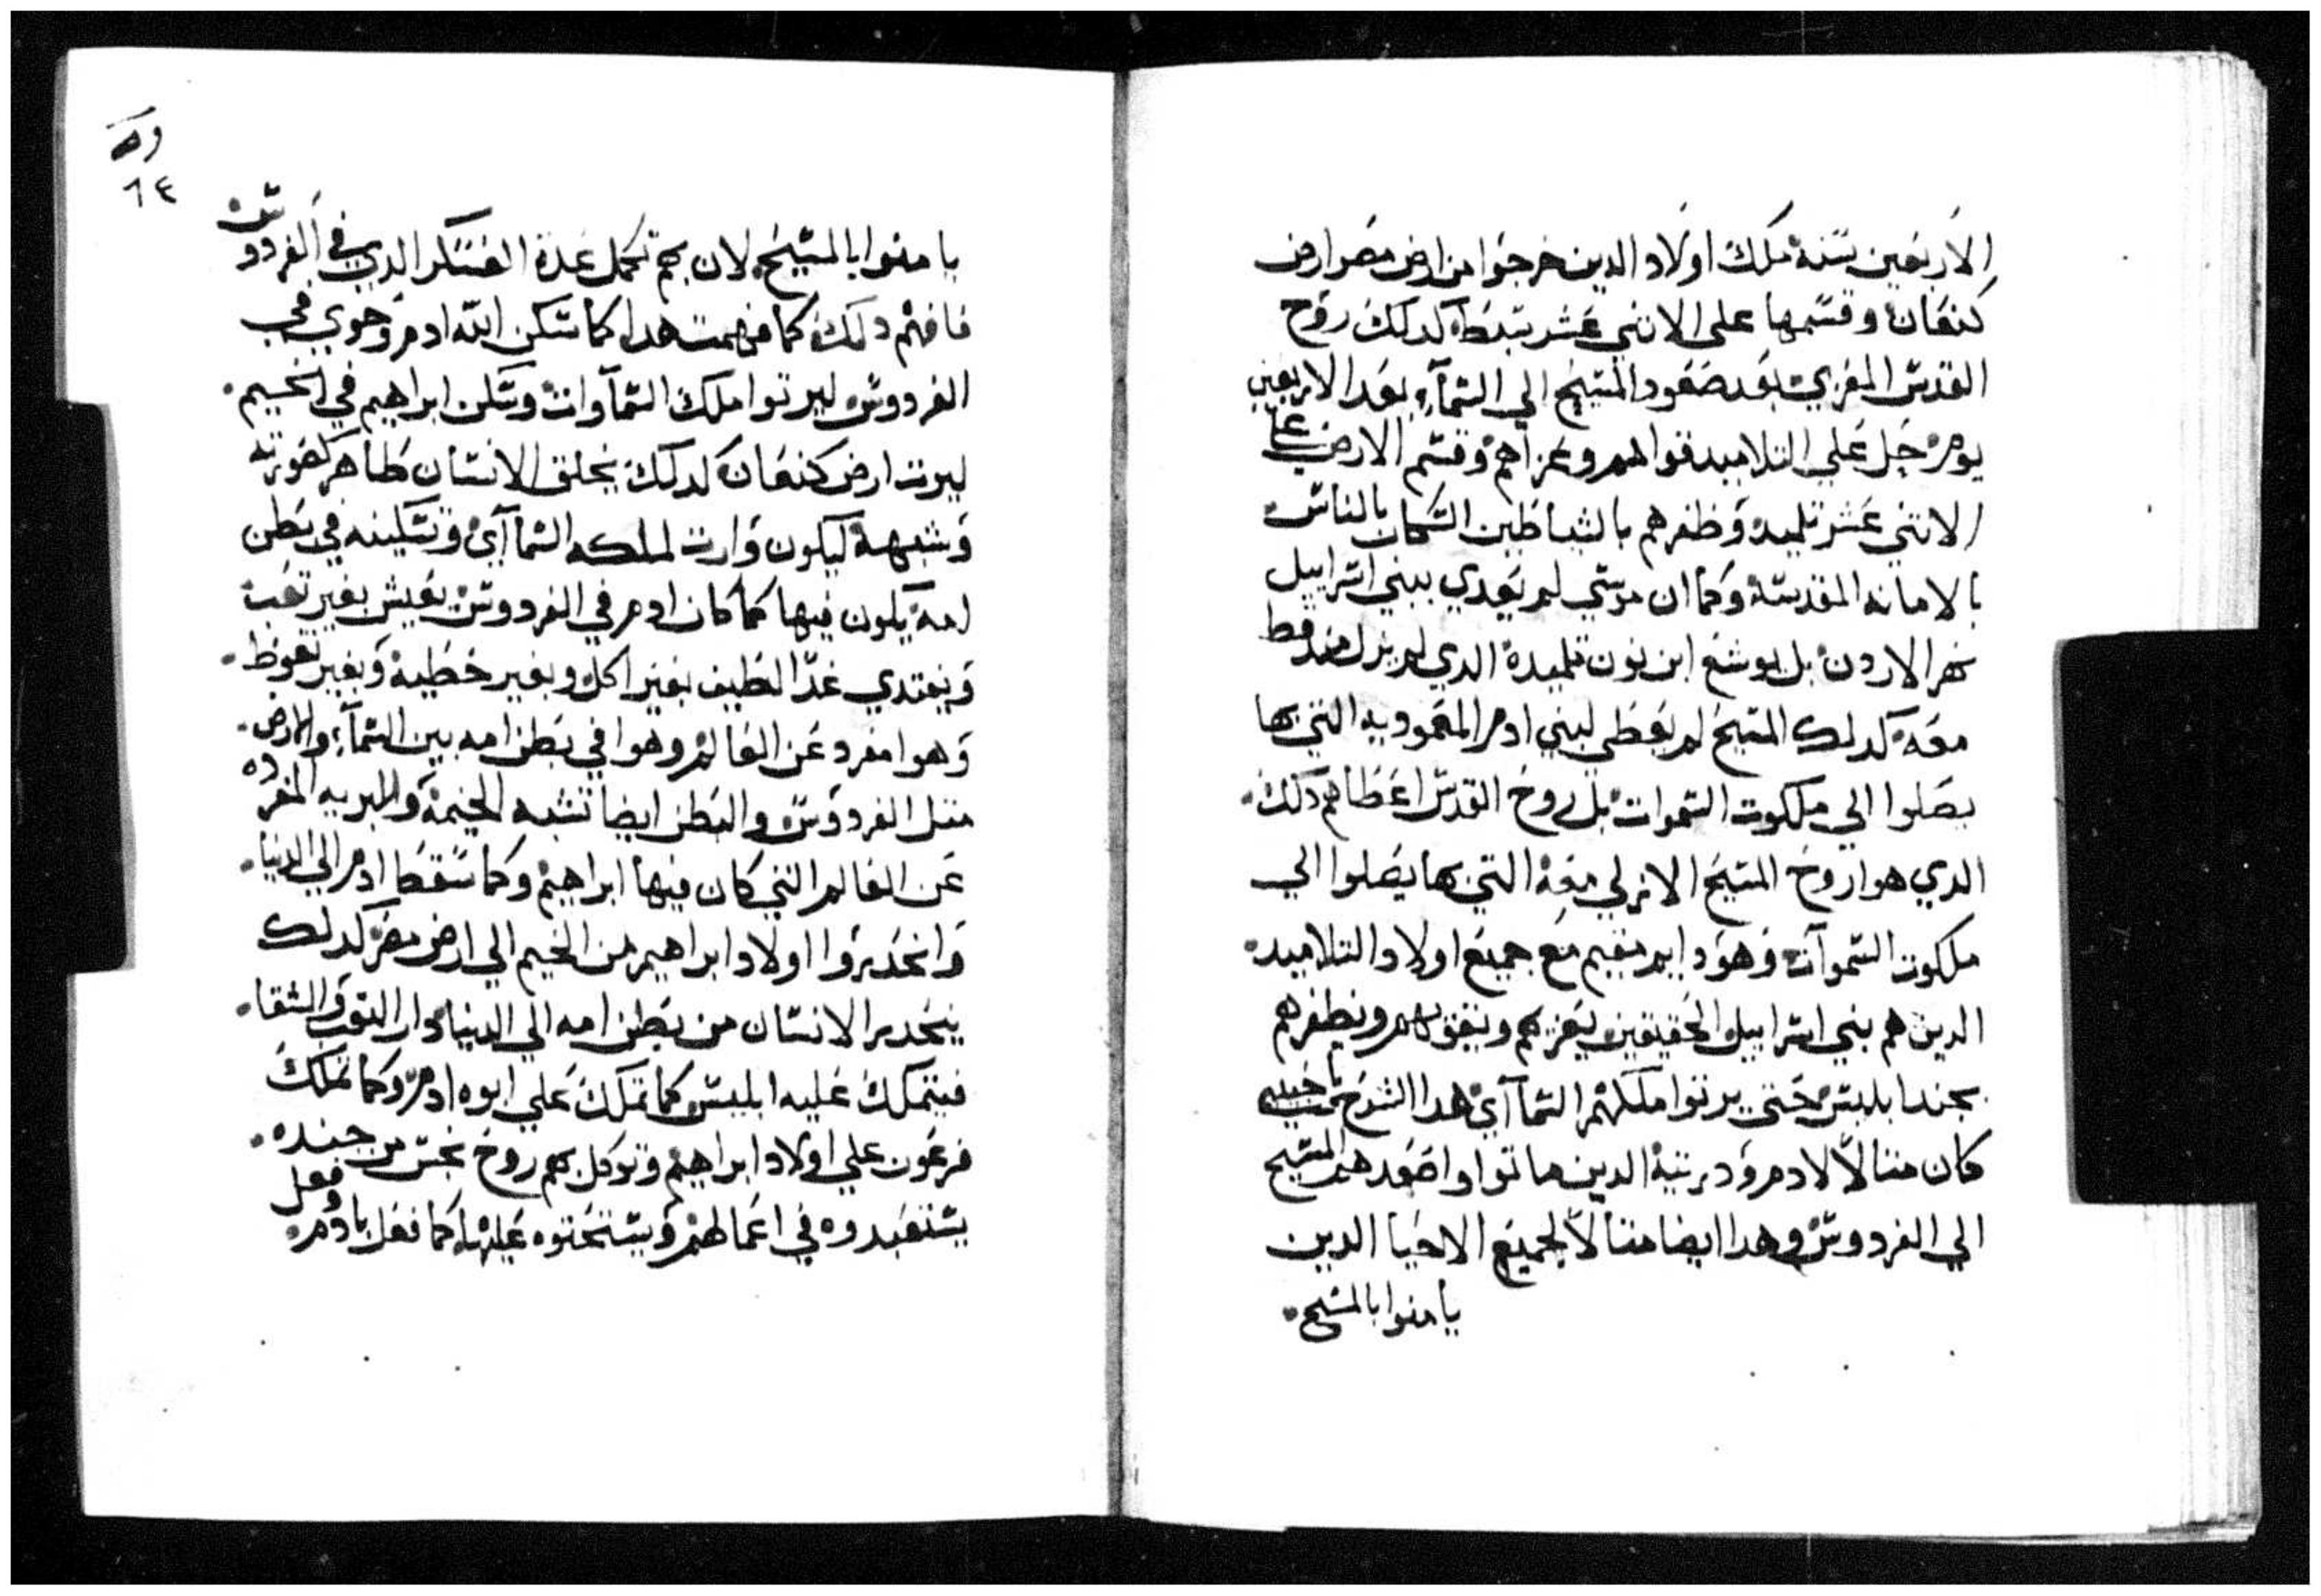 الاربعين سنة ملك اولاد الدين خرجوا من ارض مصر ارض
كنعان وقسمها على الاتني عشر سبط كدلك روح
القدس المعزي بعد صعود المسيح الي السمآء بعد الاربعين
يوم حل علي التلاميد قواهم وعزاهم وقسم الارض علي
الاتني عشر تلميد وظفرهم بالشياطين السكان بالناس
بالامانه المقدسة وكما ان موسي لم يعدي ببني اسراييل
نهر الاردن بل يوشع ابن نون تلميدة الدي لم يزل قط
معه كدلك المسيح لم يعطي لبني ادم المعموديه التي بها
يصلوا الي ملكوت السموات بل روح القدس اعطاهم دلك
الدي هوا روح المسيح الازلي معه التي بها يصلوا الي
ملكوت السموات وهو دايم مقيم مع جميع اولاد التلاميد
الدين هم بني اسراييل الحقيقين يعزيهم ويقويهم ويظفرهم
بجند ابليس حتي يرتوا ملكهم السمآاي هدا الشرح يا حبيبي
كان متالاً لادم ودريته الدين ماتوا واصعدهم المسيح
الي الفردوس وهدا ايضا متالاً لجميع الاحيا الدين
يامنوا بالمسيح
٦٤
يامنوا بالمسيح لان بهم تكمل عدة العسكر الدي في الفردوس
فافهم دلك كما فهمت هدا كما سكن الله ادم وحوي في
الفردوس ليرتوا ملك السمآوات وسكن ابراهيم في الخيم
ليرت ارض كنعان كدلك يخلق الانسان طاهر كصورته
وشبهه ليكون وارت لملكه السمآاي وتسكينه في بطن
امه يكون فيها كما كان ادم في الفردوس يعيش بغير تعب
ويغتدي غدا لطيف بغير اكل وبغير خطية وبغير تغوط
وهوا مفرد عن العالم وهوا في بطن امه بين السمآء والارض
متل الفردوس والبطن ايضا تشبه الخيمة والبريه المفرده
عن العالم التي كان فيها ابراهيم وكما سقط ادم الي الدنيا
وانحدروا اولاد ابراهيم من الخيم الي ارض مصر كدلك
ينحدر الانسان من بطن امه الي الدنيا دار التعب والشقا
فيتملك عليه ابليس كما تملك علي ابوه ادم وكما تملك
فرعون علي اولاد ابراهيم وتوكل بهم روح نجس من جنده
يستعبدوه في اعمالهم ويستحتوه عليها كما فعل بادم وفعل